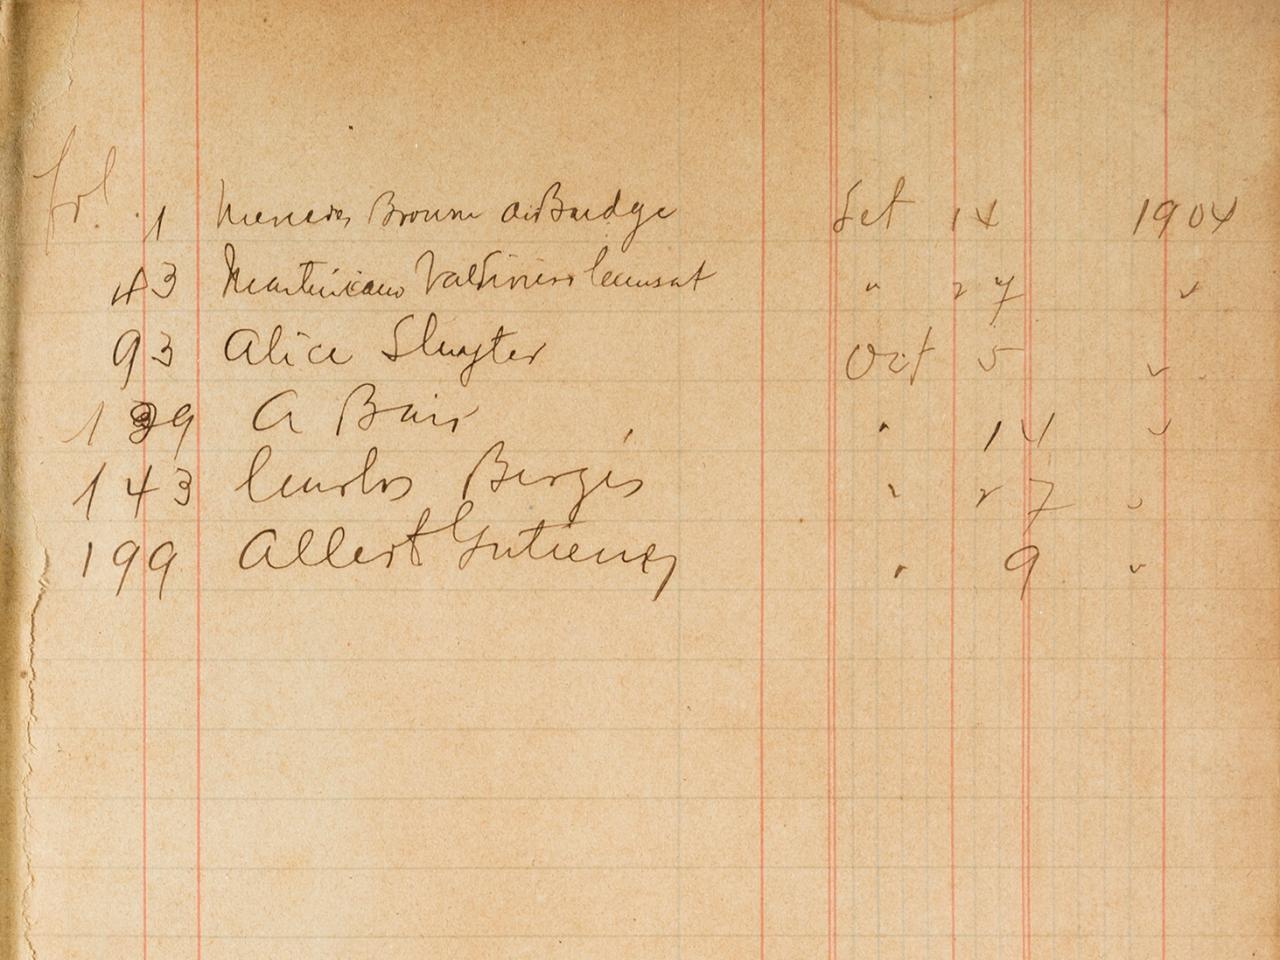 fol. 1 Mercedes Browne de Budge Set 14 1904
43 Martiniano Valdivieso " 27 "
93 Alice Sluyter Oct 5 "
139 A Bais " 14 "
143 Carlos Berges " 27 "
199 Albert Gutierrez " 9 "